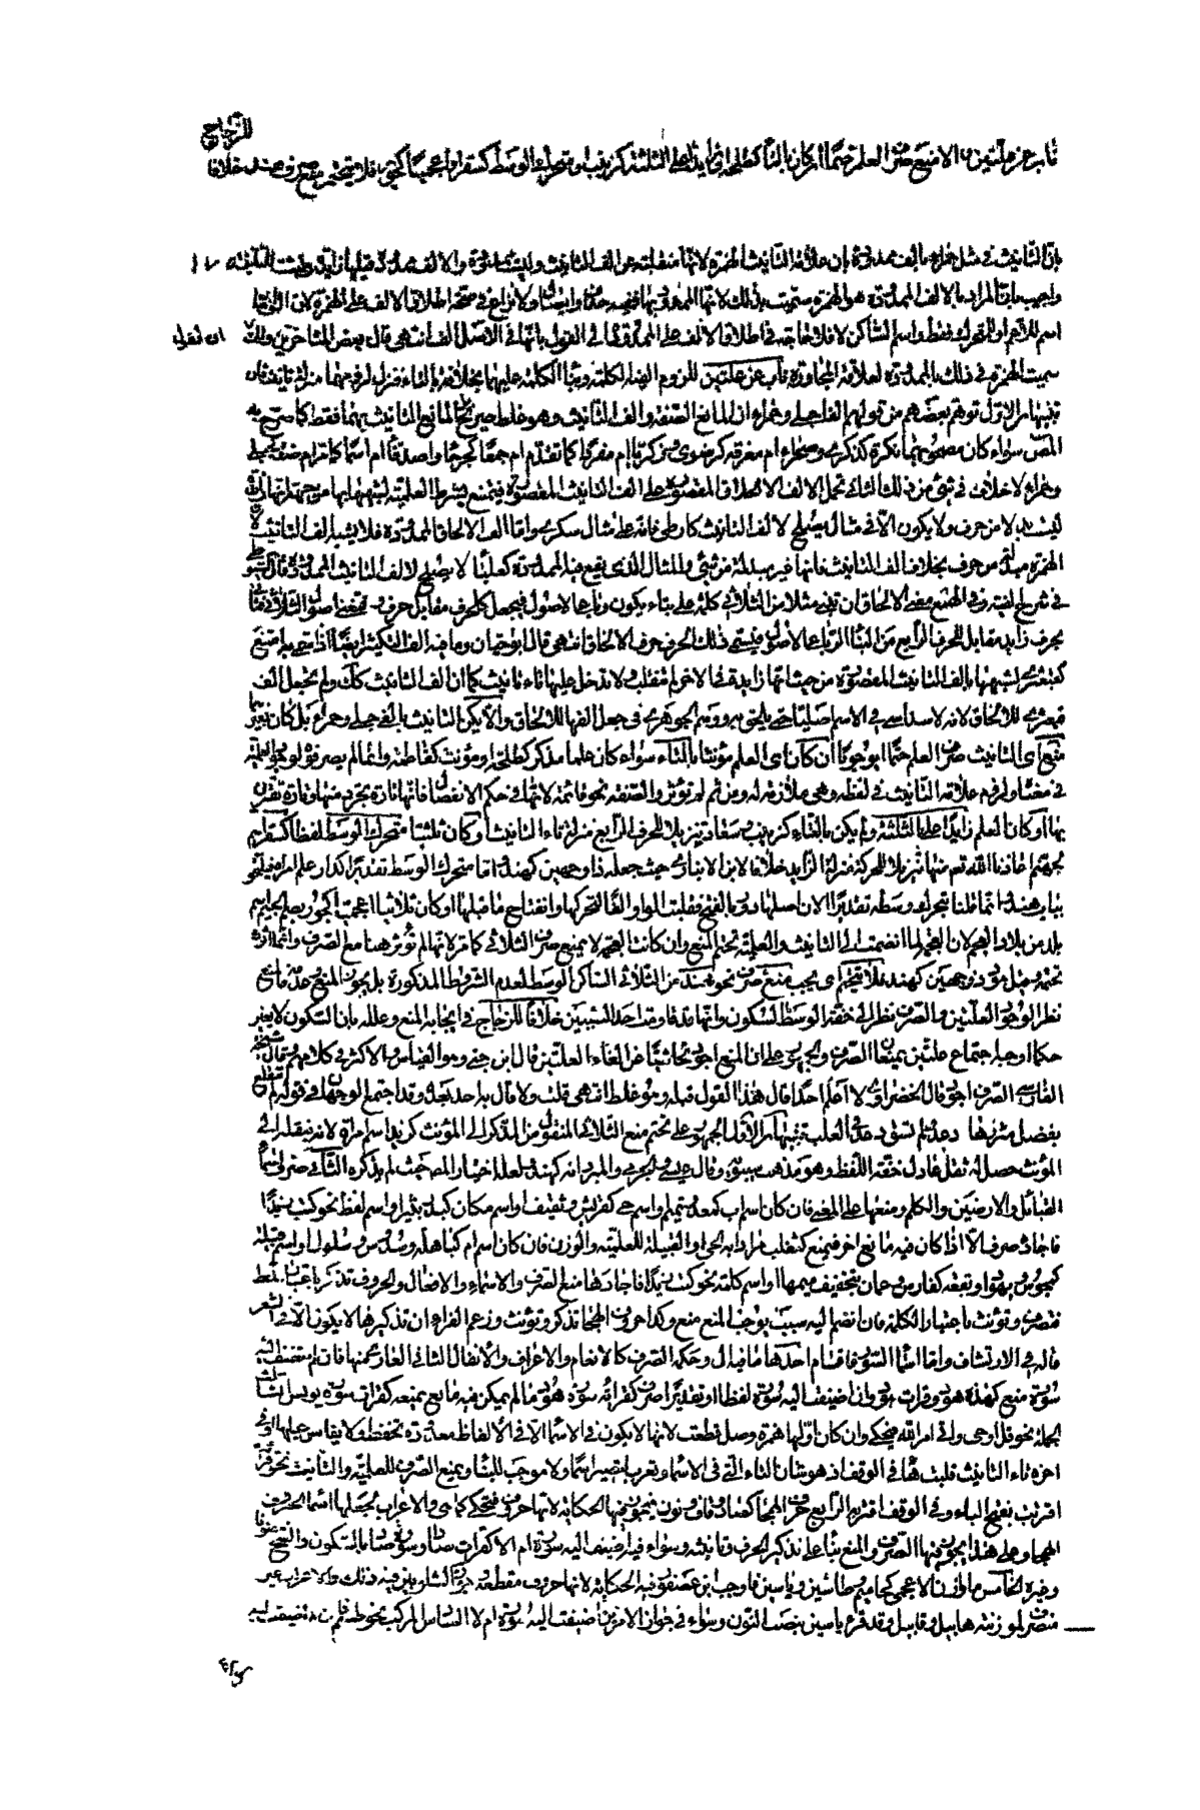 للزجاج
ناب عن علتين والا منع صرف العلم حتما ان كان بالتاء كطلحة او زايدا على الثلثة كزينب او متحرك الوسط كسقر او اعجميا كجور فلا يتحتم منع صرف هند خلافا
بان التانيث في مثل حمراء بالف ممدودة بان علامة التانيث الهمزة لانها منقلبة عن الف التانيث وليست ممدودة والالف ممدودة قبلها زايدة وليست للتانيث
واجيب بان المراد بالالف الممدودة هو الهمزة سميت بذلك لانها الممدود بها قبله
اسم للاعم او للمتحرك فقط واسم الساكن لا فلا حاجة في اطلاق الالف على الممدودة الى القول بانها في الاصل الف انتهى قال بعض المتاخرين ولك ان تقول
سميت الهمزة في ذلك بالممدودة لعلاقة المجاورة ناب عن علتين للزوم البناء الكلمة وبناء الكلمة عليها بخلافه بالتاء فنزل لزومها منزلة تانيث ثان
تنبيهان الاول توهم بعضهم من قولهم الف حبلى وحمراء ان المانع الصفة والف التانيث وهو غلط صريح المانع التانيث بهما فقط كما صرح به
المص سواء كان مصحوبهما نكرة كذكرى وصحراء ام معرفة كرضوى وزكريا ام مفردا كما تقدم ام جمعا كجرحى واصدقاء ام اسما كما تقدم ام صفة كحبلى
وحمراء لا خلاف في شيء من ذلك الثاني تحمل الالف الالحاق المقصورة على الف التانيث المقصورة فيمنع بشرط العلمية لشبهها بها من جهة انها زايدة
ليست بدلا من حرف ولا يكون الا في مثال يصلح لالف التانيث كارطى فانه على مثال سكرى واما الف الالحاق الممدودة فلا يشبه الف التانيث لان
الهمزة مبدلة من حرف بخلاف الف التانيث فانها غير مبدلة من شيء والمثال الذي يقع فيه الممدودة كعلباء لا يصلح لالف التانيث الممدودة قال السيوطي
في شرح الفيته وجمع الجمع معنى الالحاق ان تبنى مثلا من الثلاثي كلمة على بناء يكون رباعي الاصول فيجعل كل حرف مقابل حرف
بحرف زايد مقابل للحرف الرابع من البناء الرباعي الاصول فيسمى ذلك الحرف حرف الالحاق انتهى قال ابو حيان وما فيه الف التكثير ايضا اذا سمي به امتنع
كقبعثرى لشبهها بالف التانيث المقصورة من حيث انها زايدة في الاخر لم تنقلب ولا تدخل عليها تاء تانيث كما ان الف التانيث كذلك ولم تجعل الف
قبعثرى للالحاق لانه لا سداسي في الاسم اصليا حتى يلحق به ووهم الجوهري في جعل الفها للالحاق والا يكن التانيث بالفي حبلى وحمراء بل كان بغيرهما
منع اي التانيث صرف العلم حتما اي وجوبا ان كان اي العلم مؤنثا بالتاء سواء كان علما مذكر كطلحة او مؤنث كفاطمة وانما لم يصرفوه لوجود العلمية
في معناه ولزوم علامة التانيث في لفظه وهي ملازمة له ومن ثم لم تؤثر والصفة نحو قائمة لانها في حكم الانفصال فانها تارة تجرد منها وتارة تقترن
بها او كان العلم زايدا على الثلثة ولم يكن بالتاء كزينب وسعاد تنزيلا للحرف الرابع منزلة تاء التانيث او كان ثلثيا متحرك الوسط لفظا كسقر اسم
لجهنم اعاذنا الله تعالى منها تنزيلا للحركة منزلة الزايد خلافا لابن الانباري حيث جعله ذا وجهين كهند اما متحرك الوسط تقديرا كدار علم امراة فيلحق
بباب هند انما قلنا بتحرك وسطه تقديرا لان اصلها دور بالفتح فقلبت الواو الفا لتحركها وانفتاح ما قبلها او كان ثلاثيا اعجميا كجور بضم الجيم اسم
بلد من بلاد العجم لان العجمة لما انضمت الى التانيث والعلمية تحتم المنع وان كانت العجمة لا يمنع صرف الثلاثي كما مر لانها لم تؤثر هنا منع الصرف وانما اثرت
تحتمه قبل مؤنث ذو وجهين كهند فلا يتحتم اي يجب منع صرف نحو هند من الثلاثي الساكن الوسط لعدم الشروط المذكورة بل يجوز المنع
نظرا لوجود العلتين والصرف نظرا الى خفة الوسط بالسكون وانها قد قاومت احد السببين خلافا للزجاج في ايجابه المنع وعلله بان السكون لا يغير
حكما اوجبه اجتماع علتين يمنعان الصرف والجمهور على ان المنع اجود تحاشيا عن الغاء العلتين قال ابن جني وهو القياس والاكثر في كلامهم وقال شيخه
الفارسي الصرف اجود قال الخضراوي لا اعلم احدا قال هذا القول قبله وهو غلط انتهى قلت ولا قال به احد بعده وقد اجتمع الوجهان في قوله لم تتلفع
بفضل مئزرها دعد ولم تسق دعد في العلب تنبيهات الاول الجمهور على تحتم منع الثلاثي المنقول من المذكر الى المؤنث كزيد اسم امراة لانه بنقله الى
المؤنث حصل له ثقل عادل خفة اللفظ وهو مذهب سيبويه وقال عيسى والجرمي والمبرد انه كهند ولعله اختيار المص حيث لم يذكره الثاني صرف اسماء
القبائل والارضين والكلم ومنعها على المعنى فان كان اسم اب كمعد وتميم او اسم حي كقريش وثقيف او اسم مكان كبدر وثبير او اسم لفظ نحو كتب زيد
فاجاد صرف الا اذا كان فيه مانع اخر فيمنع كتغلب مرادا به الحي او القبيلة للعلمية والوزن فان كان اسم ام كباهلة وسدوس وسلول او اسم قبيلة
كمجوس ويهود او بقعة كفارس وعمان بتخفيف ميمها او اسم كلمة نحو كتب زيد فاجادها منع الصرف والاسماء والافعال والحروف تذكر باعتبار اللفظ
فتصرف وتؤنث باعتبار الكلمة فان انضم اليه سبب يوجب المنع منع وكذا حروف الهجاء تذكر وتؤنث وزعم الفراء ان تذكيرها لا يكون الا في الشعر
قاله في الارتشاف واما اسماء السور فاقسام احدها ما فيه ال وحكمه الصرف كالانعام والاعراف والانفال الثاني العاري منها فان لم تضف اليه
سورة منع كهذه هود وقرات هود وان اضيف اليه سورة لفظا او تقديرا صرف كقراءة سورة هود ما لم يكن فيه مانع يمنعه كقرات سورة يونس الثالث
الجملة نحو قل اوحي واتى امر الله فيحكي وان كان اولها همزة وصل قطعت لانها لا يكون في الاسماء الا في الالفاظ معدودة تحفظ ولا يقاس عليها او في
اخره تاء التانيث قلبت هاء في الوقف اذ هو شان التاء التي في الاسماء وتعرب لمصيرها اسما ولا موجب للبناء ويمنع الصرف للعلمية والتانيث نحو قرات
اقتربت بفتح الباء وفي الوقف اقتربه الرابع حرف الهجاء كصاد وقاف ونون فيجوز فيها الحكاية لانها حروف فتحكى كما هي والاعراب لجعلها اسماء الحروف
الهجاء وعلى هذا يجوز فيها الصرف والمنع بناء على تذكير الحرف وتانيثه وسواء فيه اضيف اليه سورة ام لا كقرات صاد وسورة صاد بالسكون والفتح منونا
وغيره الخامس ما وازن الاعجمي كحاميم وطاسين وياسين فاوجب ابن عصفور فيه الحكاية لانها حروف مقطعة وجوز الشلوبين فيه ذلك والاعراب غير
منصرف لموازنته هابيل وقابيل وقد قرئ ياسين بنصب النون وسواء في جواز الامرين اضيفت اليه سورة ام لا السادس المركب نحو طسم فان لم تضف اليه